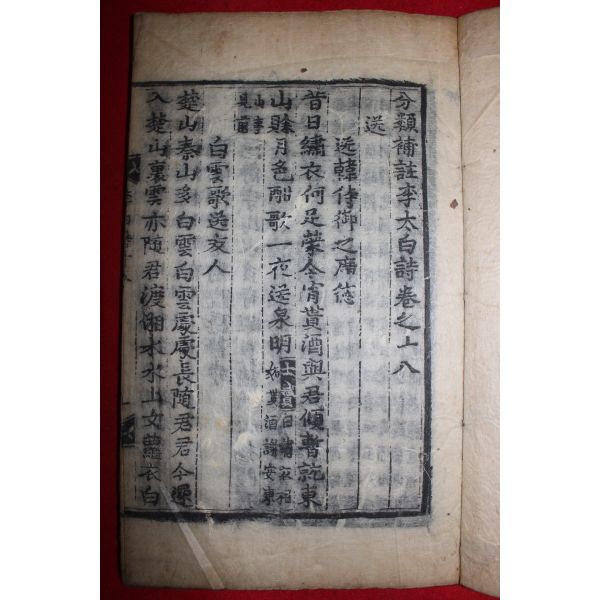 分類補註李太白詩卷之十八
送
送韓侍御之廣德
昔日繡衣何足榮今宵貰酒與君傾暫就東
山賖月色酣歌一夜送泉明士贇曰
山事
見前
白雲歌送友人
楚山秦山多白雲白雲處處長隨君君今還
入楚山裏雲亦隨君渡湘水水上女蘿衣白